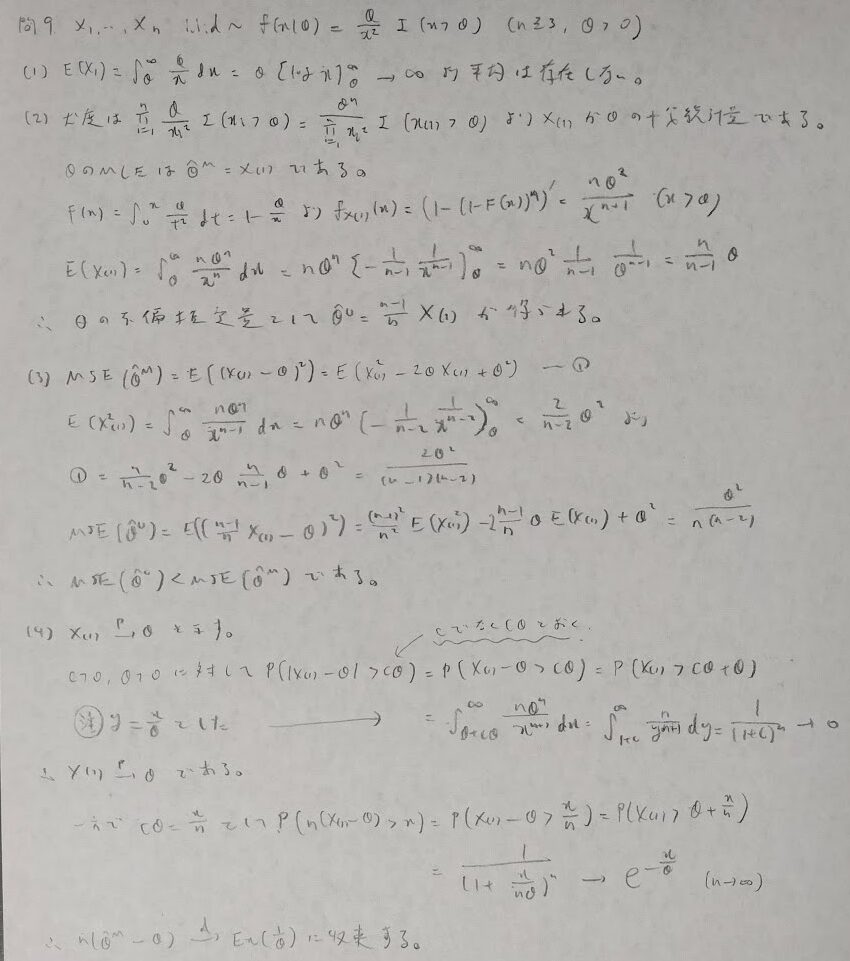 問9 X₁, …, Xₙ i.i.d ~ f(x|θ) = θ/x² I(x>θ) (n≧3, θ>0)
(1) E(X₁) = ∫_θ^∞ θ/x dx = θ[log x]_θ^∞ → ∞ より平均は存在しない。
(2) 尤度は ∏_{i=1}^n θ/xᵢ² I(xᵢ>θ) = θⁿ/∏_{i=1}^n xᵢ² I(x₍₁₎>θ) より X₍₁₎ が θ の十分統計量である。
θのMLEは θ̂ᴹ = X₍₁₎ である。
F(x) = ∫_θ^x θ/t² dt = 1 - θ/x より f_{X₍₁₎}(x) = (1-(1-F(x))ⁿ)' = nθ²/x^{n+1} (x>θ)
E(X₍₁₎) = ∫_θ^∞ nθⁿ/xⁿ dx = nθⁿ[-1/(n-1) 1/x^{n-1}]_θ^∞ = nθ² 1/(n-1) 1/θ^{n-1} = n/(n-1) θ
∴ θの不偏推定量として θ̂ᵁ = (n-1)/n X₍₁₎ が得られる。
(3) MSE(θ̂ᴹ) = E((X₍₁₎-θ)²) = E(X₍₁₎² - 2θX₍₁₎ + θ²) ―①
E(X₍₁₎²) = ∫_θ^∞ nθⁿ/x^{n-1} dx = nθⁿ(-1/(n-2) 1/x^{n-2})_θ^∞ = 2/(n-2) θ² より
① = n/(n-2) θ² - 2θ n/(n-1) θ + θ² = 2θ²/((n-1)(n-2))
MSE(θ̂ᵁ) = E(((n-1)/n X₍₁₎ - θ)²) = (n-1)²/n² E(X₍₁₎²) - 2 (n-1)/n θ E(X₍₁₎) + θ² = θ²/(n(n-2))
∴ MSE(θ̂ᵁ) < MSE(θ̂ᴹ) である。
(4) X₍₁₎ →ᵖ θ を示す。
cでなくcθとおく.
c>0, θ>0 に対して P(|X₍₁₎-θ|>cθ) = P(X₍₁₎-θ>cθ) = P(X₍₁₎>cθ+θ)
注 y = x/θ とした → = ∫_{θ+cθ}^∞ nθⁿ/x^{n+1} dx = ∫_{1+c}^∞ n/y^{n+1} dy = 1/(1+c)ⁿ → 0
∴ X₍₁₎ →ᵖ θ である。
一方で cθ = x/n として P(n(X₍₁₎-θ)>x) = P(X₍₁₎-θ > x/n) = P(X₍₁₎ > θ + x/n)
= 1/(1 + x/(nθ))ⁿ → e^{-x/θ} (n→∞)
∴ n(θ̂ᴹ-θ) →ᵈ Ex(1/θ) に収束する。